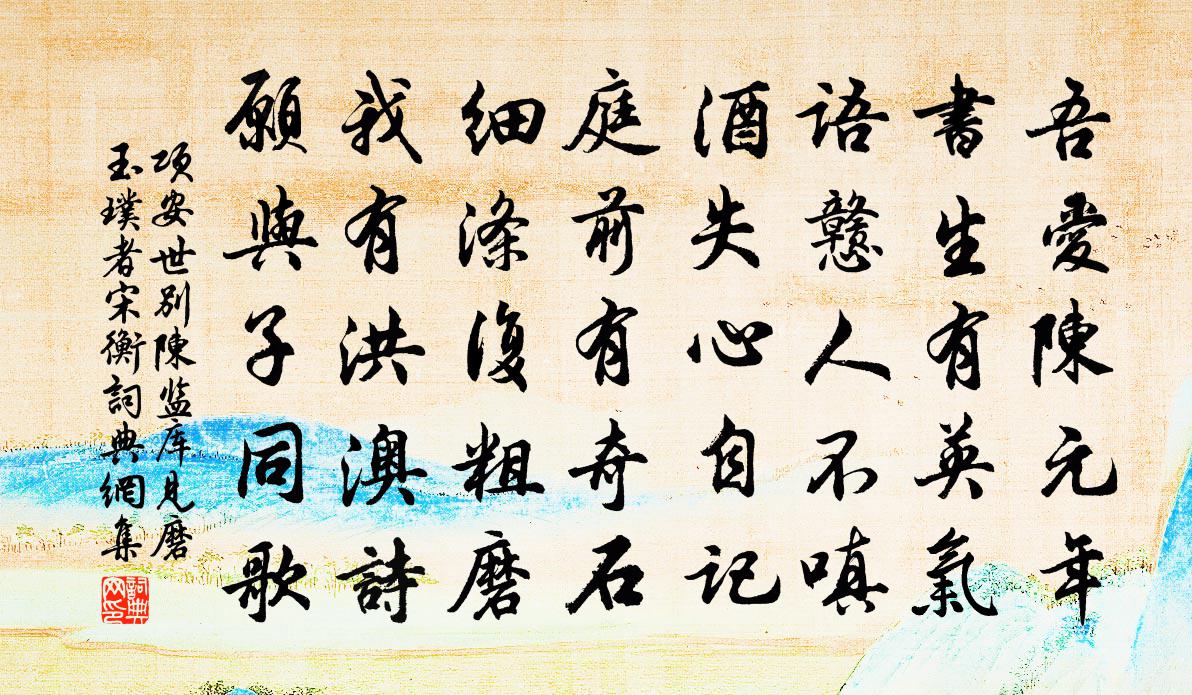 吾愛陳元年
書生有英氣
語戇人不嗔
酒失心自記
庭前有奇石
細滌復粗磨
我有洪澳詩
願與子同歌
项安世别陳监库见磨
玉璞者宋衡詞典網集
詞典
网印